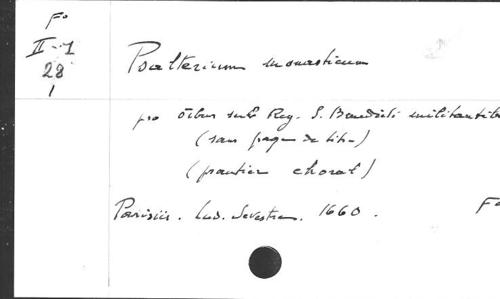 Fo
II-1
28
1
Psalterium monasticum
pro oibus sub Reg. S. Benedicti militantib
(sans page de titre)
(psautier choral)
Parisiis. Lud. Sevestre. 1660. Fo